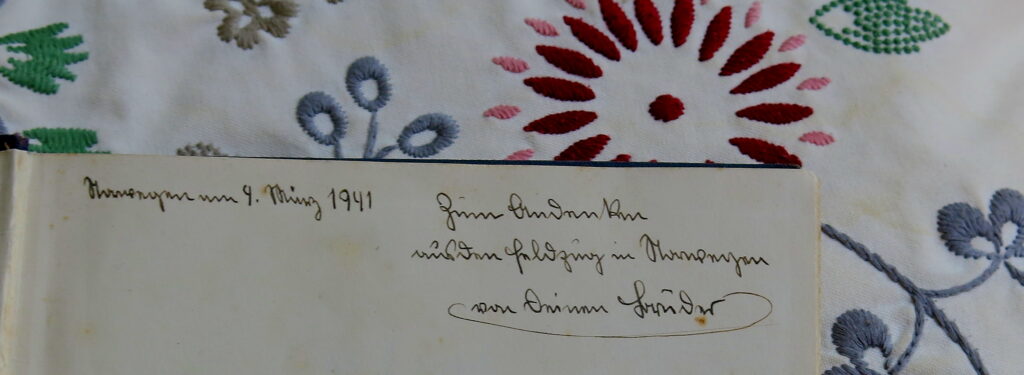 Norwegen am 9. März 1941
Zum Andenken
aus den Feldzug in Norwegen
von Deinen Bruder